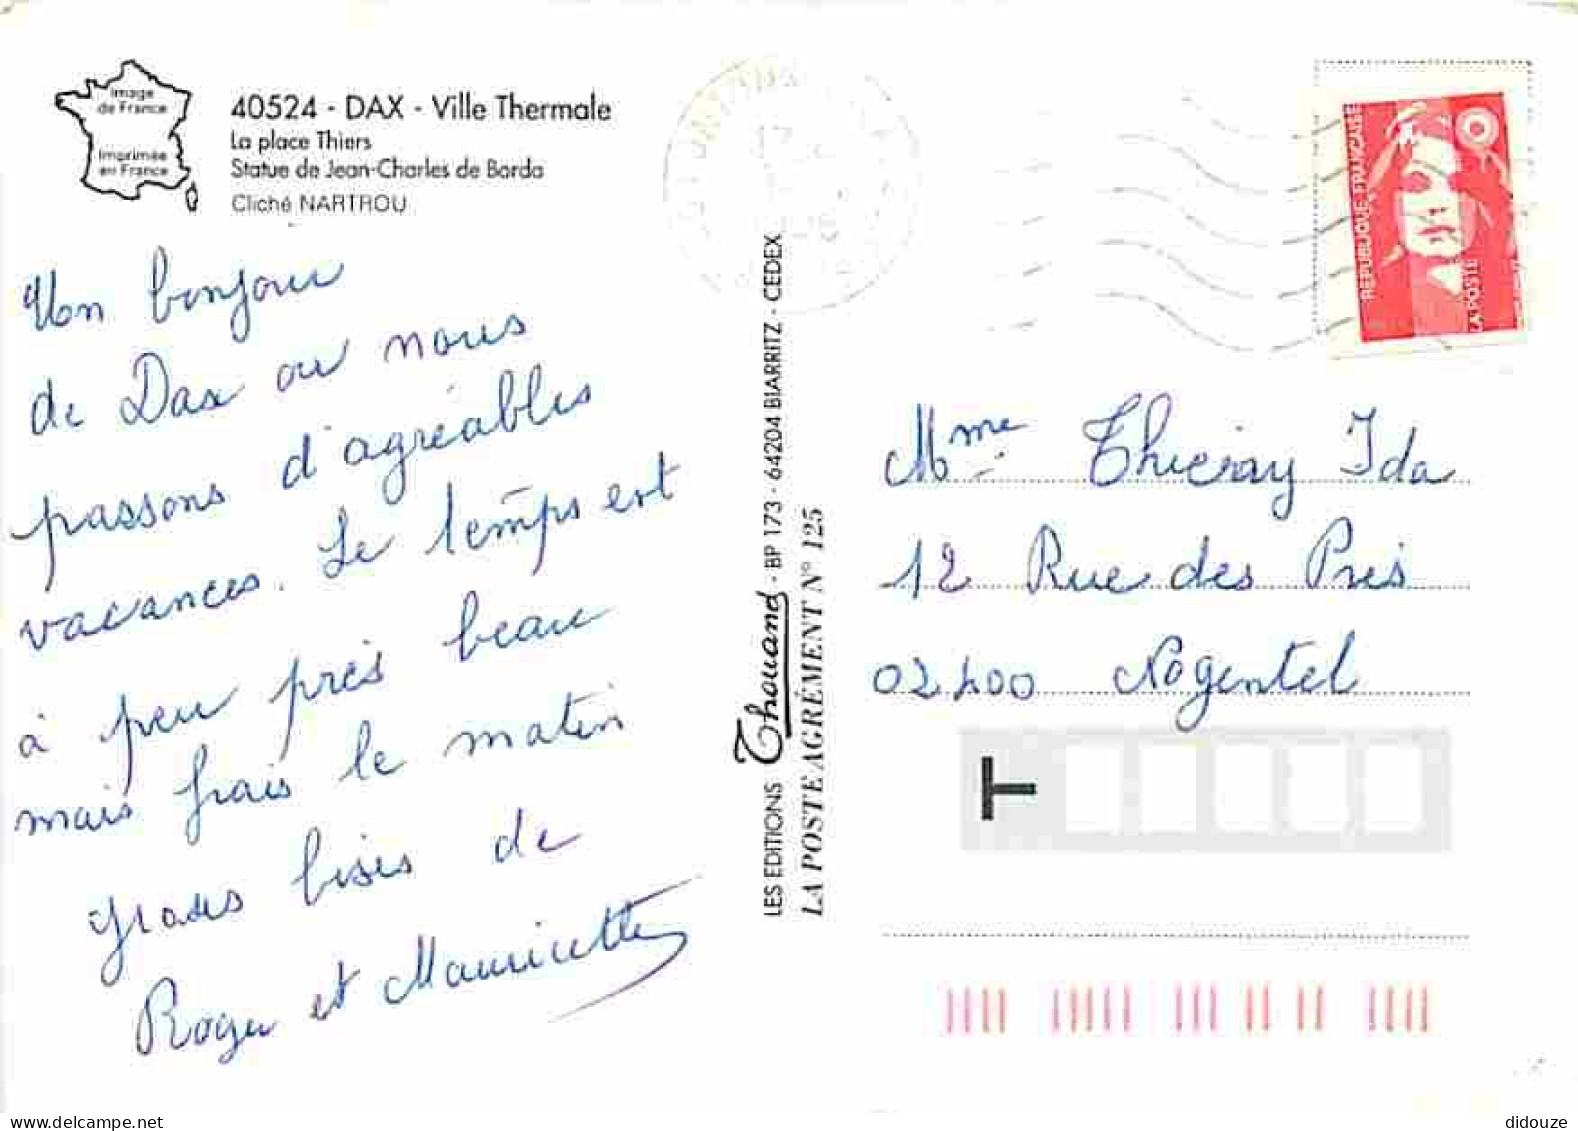 Image
de France
Imprimée
en France
40524 - DAX - Ville Thermale
La place Thiers
Statue de Jean-Charles de Borda
Cliché NARTROU
Un bonjour
de Dax ou nous
passons d'agréables
vacances. Le temps est
à peu près beau
mais frais le matin
Gross bises de
Roger et Mauricette
LES EDITIONS Thouand - BP 173 - 64204 BIARRITZ - CEDEX
LA POSTE AGRÉMENT N° 125
REPUBLIQUE FRANÇAISE
LA POSTE
Mme Thieray Ida
12 Rue des Prés
02400 Nogentel
T
didouze